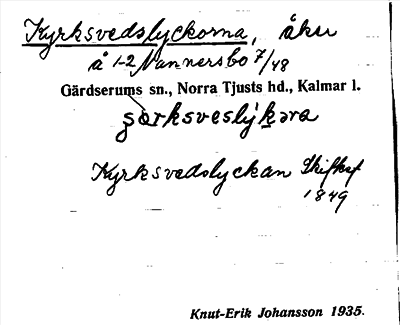 Kyrksvedslyckorna, åker
å 1-2 Nannersbo 7/48
Gärdserums sn., Norra Tjusts hd., Kalmar l.
Kyrksvedslyckan Skifteskt
1849
Knut-Erik Johansson 1935.